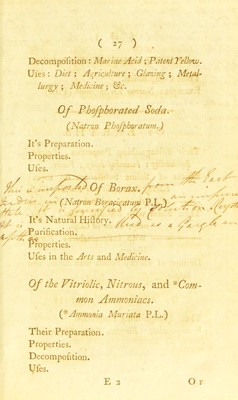 ( 27 )
Decomposition : Marine Acid ; Patent Yellow.
Uses : Diet ; Agriculture ; Glazing ; Metal-
lurgy ; Medicine ; &c.
Of Phosphorated Soda.
(Natron Phosphoratum.)
It's Preparation.
Properties.
Uses.
This is imported from the East
Of Borax.
(Natron Boracicatum P.L.)
It's Natural History.
Purification.
Properties.
Uses in the Arts and Medicine.
Of the Vitriolic, Nitrous, and *Com-
mon Ammoniacs.
(*Ammonia Muriata P.L.)
Their Preparation.
Properties.
Decomposition.
Uses.
E 2
OF